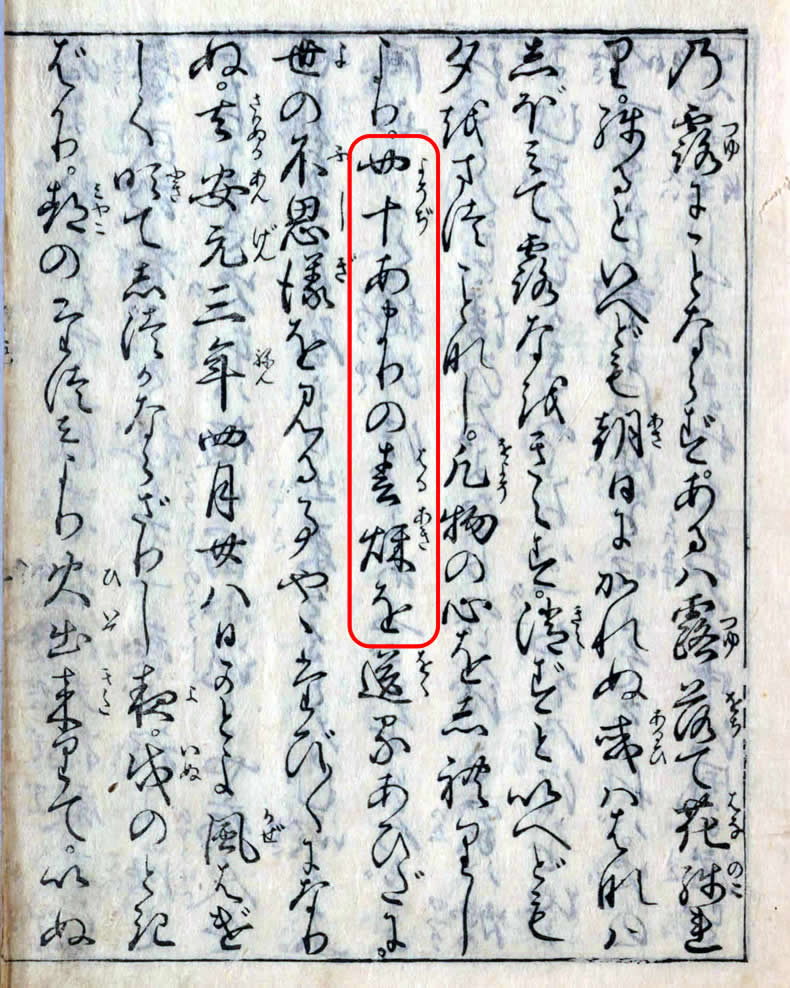 乃露にことならず。あるハ露落て花残れ
り。残るといへども朝日にかれぬ或ハはなハ
しぼミて露なをきえず。消ずといへども
夕をまつことなし。凡物の心をしれりし
より。四十あまりの春秋を送るあひだに。
世の不思議を見る事やゝたび〱になり
ぬ。去安元三年四月廿八日かとよ風はげ
しく吹てしづかならざりし夜。戌のとき
ばかり。都のたつミより火出来りて。いぬ